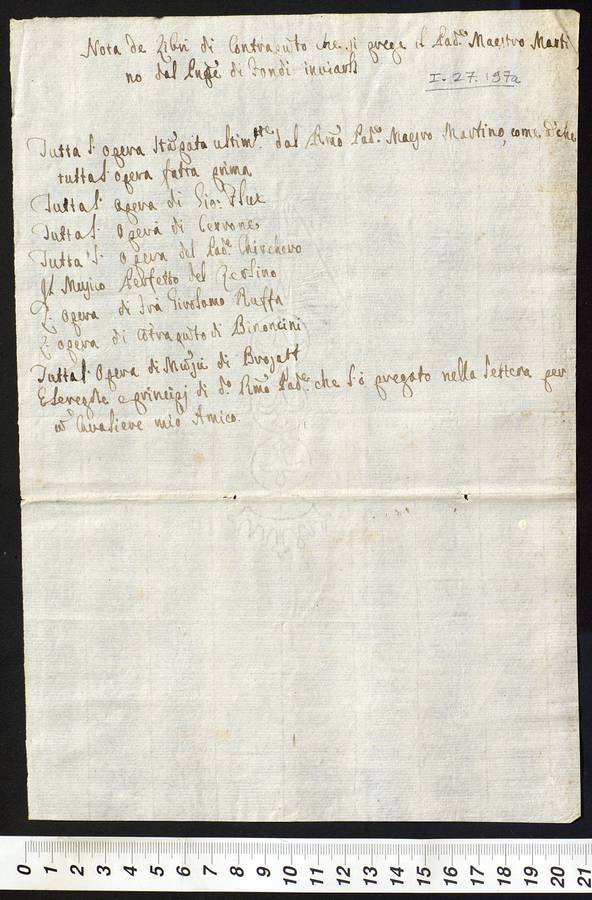 Nota de Libri di Contrapūto che si prega il Pad.e Maestro Marti
no dal di Fondi inviarli
I. 27. 197a
Tutta l' opera stāpata ultim.te dal Rmo Pad.e Maestro Martino, come ā che
tutta l' opera fatta prima
Tutta l' opera di Gio: Flux
Tutta l' opera di Cerrone
Tutta l' opera del Pad.e Chircherο
Il Musico Perfetto del Zerlino
L' opera di Frà Girolamo Ruffa
L' opera di Cōtrapūto di Bononcini
Tutta l' Opera di di Brozatt
E le regole e principj di d.o Rmo Pad.e che l' ò pregato nella lettera per
Cavaliere mio Amico.
0 1 2 3 4 5 6 7 8 9 10 11 12 13 14 15 16 17 18 19 20 21